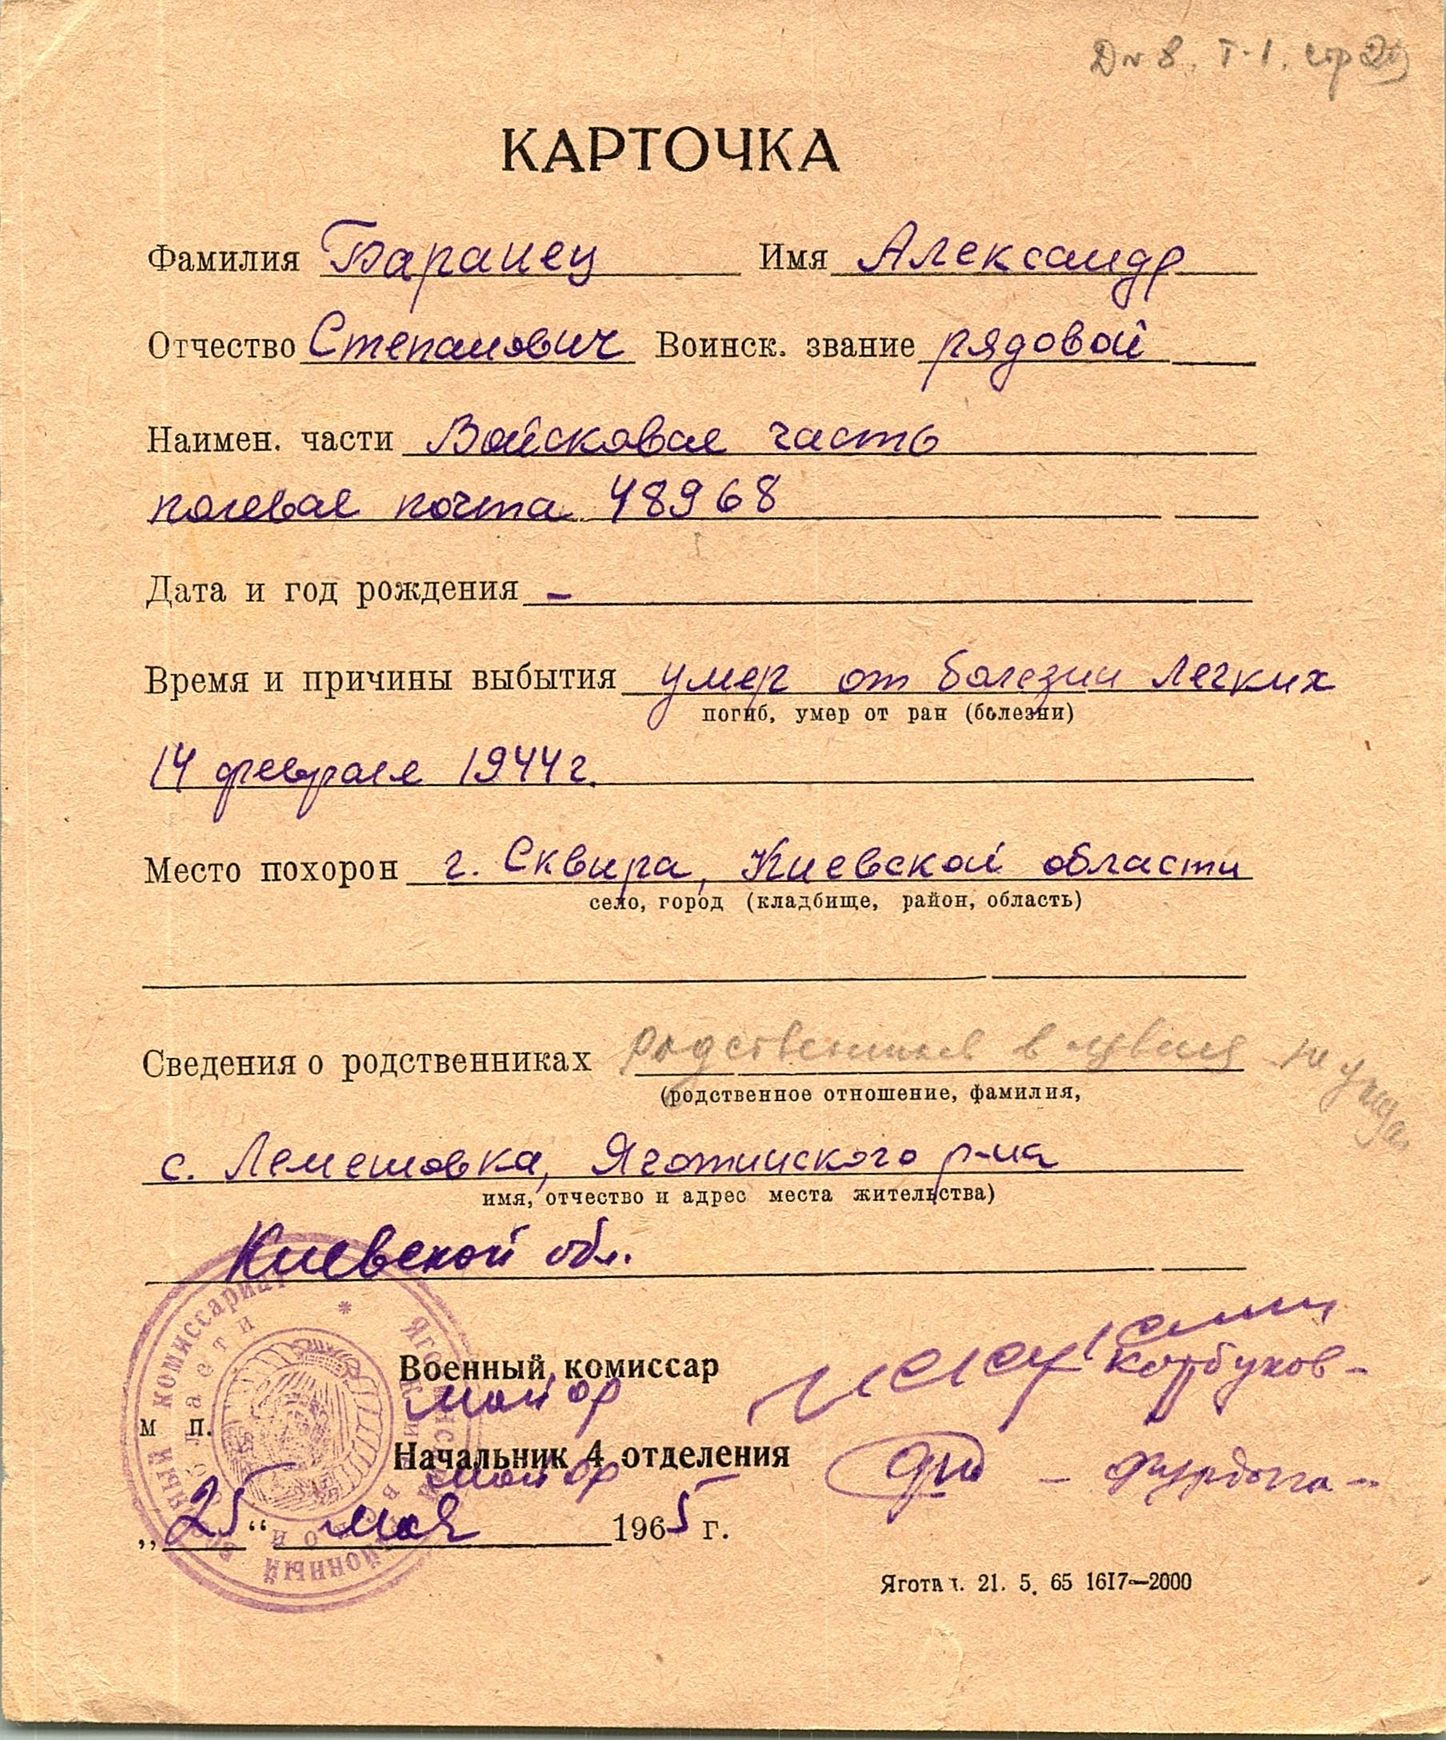 Т-1. стр
КАРТОЧКА
Фамилия Баранец Имя Александр
Отчество Степанович Воинск. звание рядовой
Наимен. части Войсковая часть
полевая почта 48968
Дата и год рождения –
Время и причины выбытия умер от болезни легких
погиб, умер от ран (болезни)
14 февраля 1944 г.
Место похорон г. Сквира, Киевской области
село, город (кладбище, район, область)
Сведения о родственниках
(родственное отношение, фамилия,
с. Лемешовка, Яготинского р-на
имя, отчество и адрес места жительства)
Киевской обл.
Военный комиссар
майор
м п.
Начальник 4 отделения
майор
„25“ мая 1965 г.
Яготин т. 21. 5. 65 1617—2000